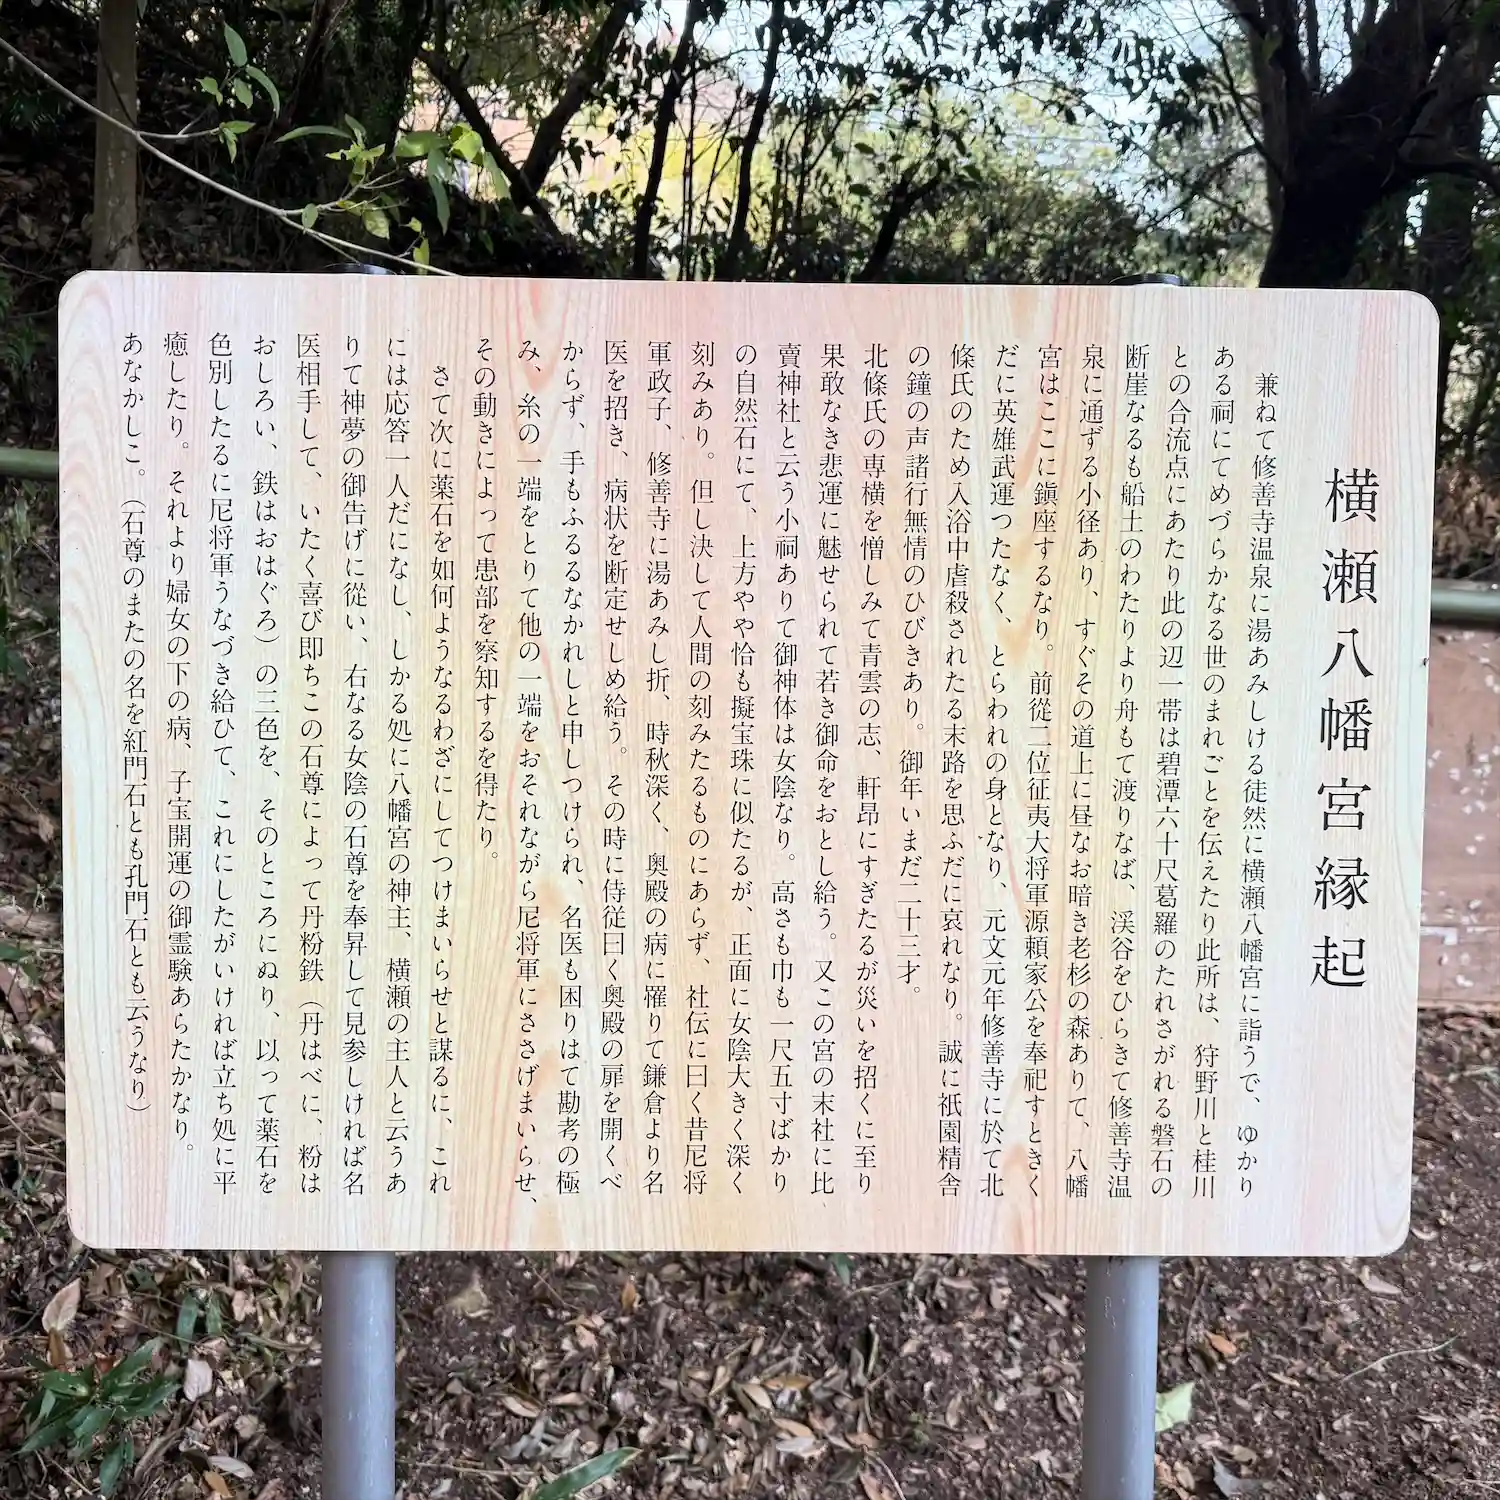 横瀬八幡宮縁起
兼ねて修善寺温泉に湯あみしける徒然に横瀬八幡宮に詣うで、ゆかり
ある祠にてめづらかなる世のまれごとを伝えたり此所は、狩野川と桂川
との合流点にあたり此の辺一帯は碧潭六十尺葛羅のたれさがれる磐石の
断崖なるも船土のわたりより舟もて渡りなば、渓谷をひらきて修善寺温
泉に通ずる小径あり、すぐその道上に昼なお暗き老杉の森ありて、八幡
宮はここに鎭座するなり。前從二位征夷大将軍源頼家公を奉祀すときく
だに英雄武運つたなく、とらわれの身となり、元文元年修善寺に於て北
條氏のため入浴中虐殺されたる末路を思ふだに哀れなり。誠に祇園精舎
の鐘の声諸行無情のひびきあり。御年いまだ二十三才。
北條氏の専横を憎しみて青雲の志、軒昂にすぎたるが災いを招くに至り
果敢なき悲運に魅せられて若き御命をおとし給う。又この宮の末社に比
賣神社と云う小祠ありて御神体は女陰なり。高さも巾も一尺五寸ばかり
の自然石にて、上方やや恰も擬宝珠に似たるが、正面に女陰大きく深く
刻みあり。但し決して人間の刻みたるものにあらず、社伝に曰く昔尼将
軍政子、修善寺に湯あみし折、時秋深く、奥殿の病に罹りて鎌倉より名
医を招き、病状を断定せしめ給う。その時に侍従曰く奥殿の扉を開くべ
からず、手もふるるなかれしと申しつけられ、名医も困りはて勘考の極
み、糸の一端をとりて他の一端をおそれながら尼将軍にささげまいらせ、
その動きによって患部を察知するを得たり。
さて次に薬石を如何ようなるわざにしてつけまいらせと謀るに、これ
には応答一人だになし、しかる処に八幡宮の神主、横瀬の主人と云うあ
りて神夢の御告げに從い、右なる女陰の石尊を奉昇して見参しければ名
医相手して、いたく喜び即ちこの石尊によって丹粉鉄（丹はべに、粉は
おしろい、鉄はおはぐろ）の三色を、そのところにぬり、以って薬石を
色別したるに尼将軍うなづき給ひて、これにしたがいければ立ち処に平
癒したり。それより婦女の下の病、子宝開運の御霊験あらたかなり。
あなかしこ。（石尊のまたの名を紅門石とも孔門石とも云うなり）